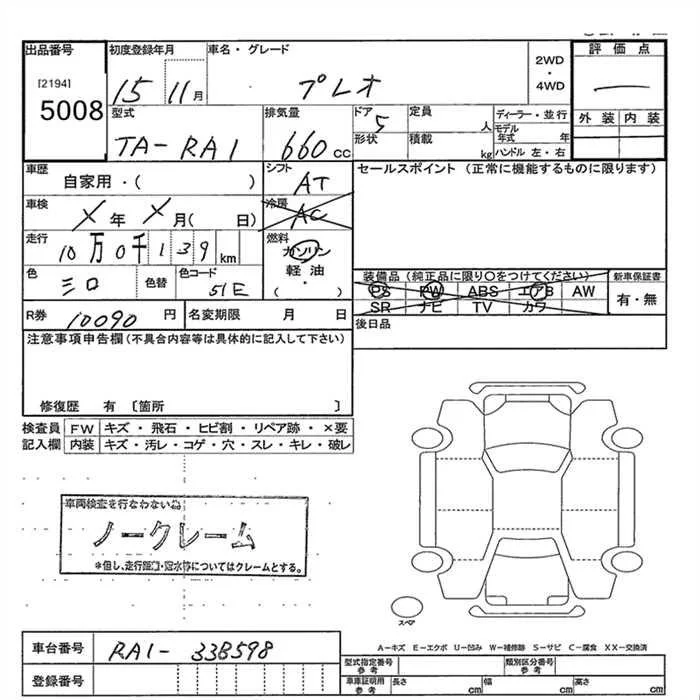 出品番号 初度登録年月 車名・グレード 2WD ・ 4WD 評価点
[2194]
5008
15 11月 プレオ
外装 内装
型式 排気量 ドア 定員 ディーラー・並行
TA-RA1 660cc 5 人 モデル年式 年
形状 積載 kg ハンドル 左・右
車歴 シフト セールスポイント (正常に機能するものに限ります)
自家用・( ) AT
車検 冷房
X年 X月( 日) AC
走行 燃料
10万0千139km ガソリン
軽油
・
( )
色 色替 色コード
シロ 51E
装備品 (純正品に限り○をつけてください) 新車保証書
PS PW ABS エアB AW 有・無
SR ナビ TV カワ
R券 10090円 名変期限 月 日 後日品
注意事項申告欄 (不具合内容等は具体的に記入して下さい)
修復歴 有 〔箇所 〕
検査員 FW キズ・飛石・ヒビ割・リペア跡・×要
記入欄 内装 キズ・汚レ・コゲ・穴・スレ・キレ・破レ
車両検査を行なわない為
ノークレーム
*但し、走行距離・冠水等についてはクレームとする。
スペア
A-キズ E-エクボ U-凹み W-補修跡 S-サビ C-腐食 XX-交換済
車台番号 RA1-338598
登録番号
型式指定番号 参考 類別区分番号 参考
車庫証明用 参考 長さ cm 幅 cm 高さ cm